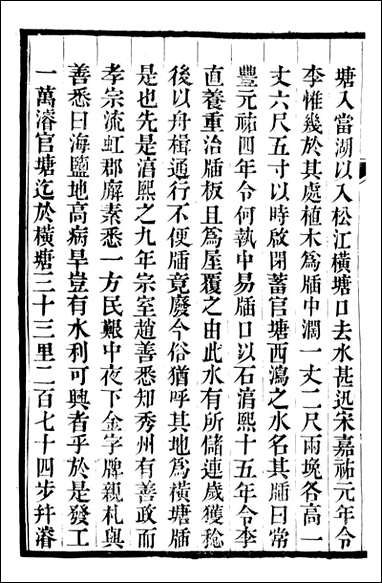 塘入當湖以入松江橫塘口去水甚迅宋嘉祐元年令
李惟幾於其處植木爲牐中濶一丈二尺兩㙇各高一
丈六尺五寸以時啟閉蓄官塘西瀉之水名其牐曰常
豐元祐四年令何執中易牐口以石淯熙十五年令李
直養重治牐板且爲屋覆之由此水有所儲連歲獲稔
後以舟楫通行不便牐竟廢今俗猶呼其地爲橫塘牐
是也先是淯熙之九年宗室趙善悉知秀州有善政而
孝宗流虹郡廨素悉一方民艱中夜下金字牌親札與
善悉曰海鹽地高病旱豈有水利可興者乎於是發工
一萬濬官塘迄於橫塘二十三里二百七十四步幷濬